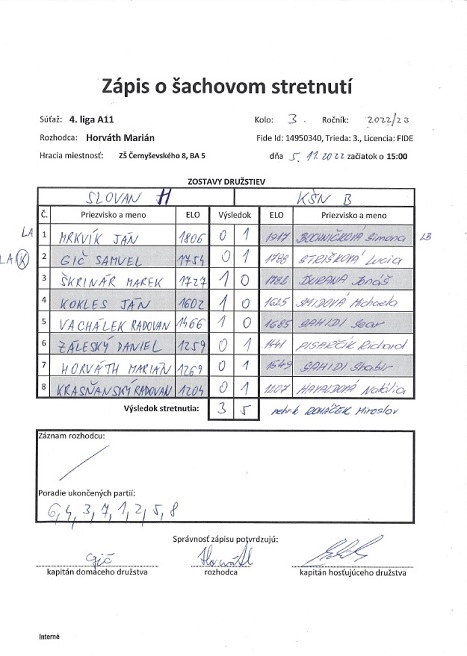 Zápis o šachovom stretnutí
Súťaž: 4. liga A11 Kolo: 3. Ročník: 2022/23
Rozhodca: Horváth Marián Fide Id: 14950340, Trieda: 3., Licencia: FIDE
Hracia miestnosť: ZŠ Černyševského 8, BA 5 dňa 5. 11. 2022 začiatok o 15:00
ZOSTAVY DRUŽSTIEV
SLOVAN H KŠN B
Č. Priezvisko a meno ELO Výsledok ELO Priezvisko a meno
LA 1 MRKVÍK JÁN 1806 0 1 Simona LB
LA 2 GIČ SAMUEL 1754 0 1 Lucia
3 ŠKRINÁR MAREK 1727 1 0 Jonáš
4 KOKLES JÁN 1602 1 0 1625 Michaela
5 VACHÁLEK RADOVAN 1466 1 0 1685
6 ZÁLESKÝ DANIEL 1259 0 1 1441 Richard
7 HORVÁTH MARIÁN 1269 0 1 1549
8 KRASŇANSKÝ RADOVAN 1204 0 1 1207 Natália
Výsledok stretnutia: 3 5 Miroslav
Záznam rozhodcu:
Poradie ukončených partií:
6, 4, 3, 7, 1, 2, 5, 8
Správnosť zápisu potvrdzujú:
Gič
kapitán domáceho družstva rozhodca kapitán hosťujúceho družstva
Interné